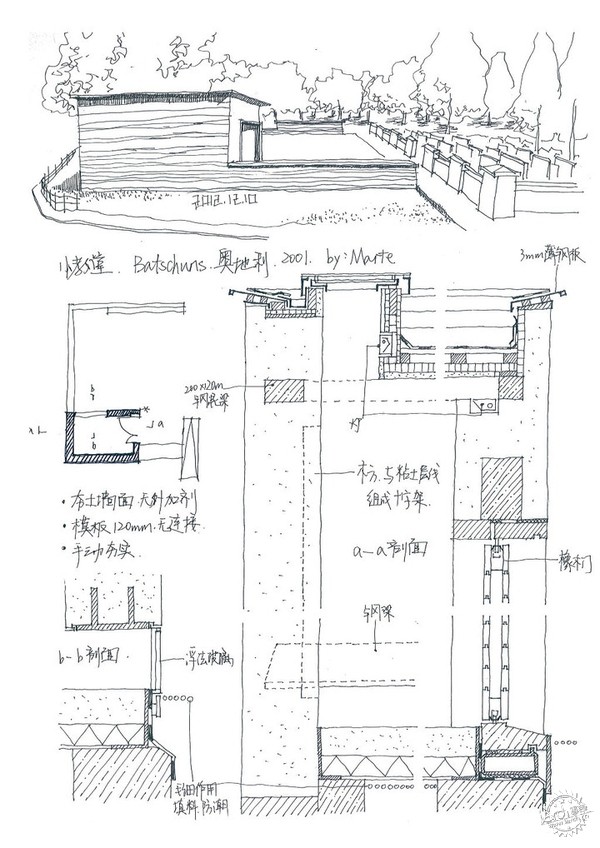 2012.12.10
小教堂. Batschuns. 奥地利. 2001. by: Marte
3mm薄钢板
200×120m
灯
木方.与粘土层线
组成十字架
a
a
b
b
• 夯土墙面.无外加剂
• 模板120mm.无连接.
• 手动夯实.
a-a剖面
橡木门
b-b剖面
浮法玻璃
毛细作用
填料.防潮